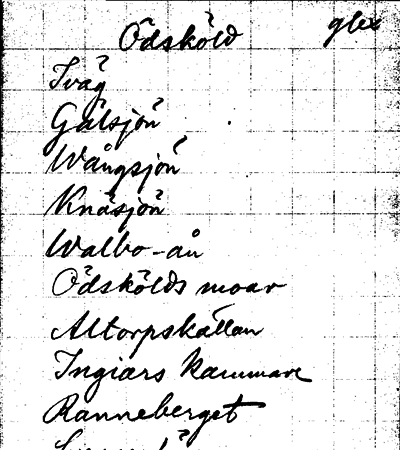 Ödsköld
Iväg
Galsjön
Wångsjön
Knäsjön
Walbo-ån
Ödskölds moar
Altorpskällan
Ingiärs kammare
Ranneberget